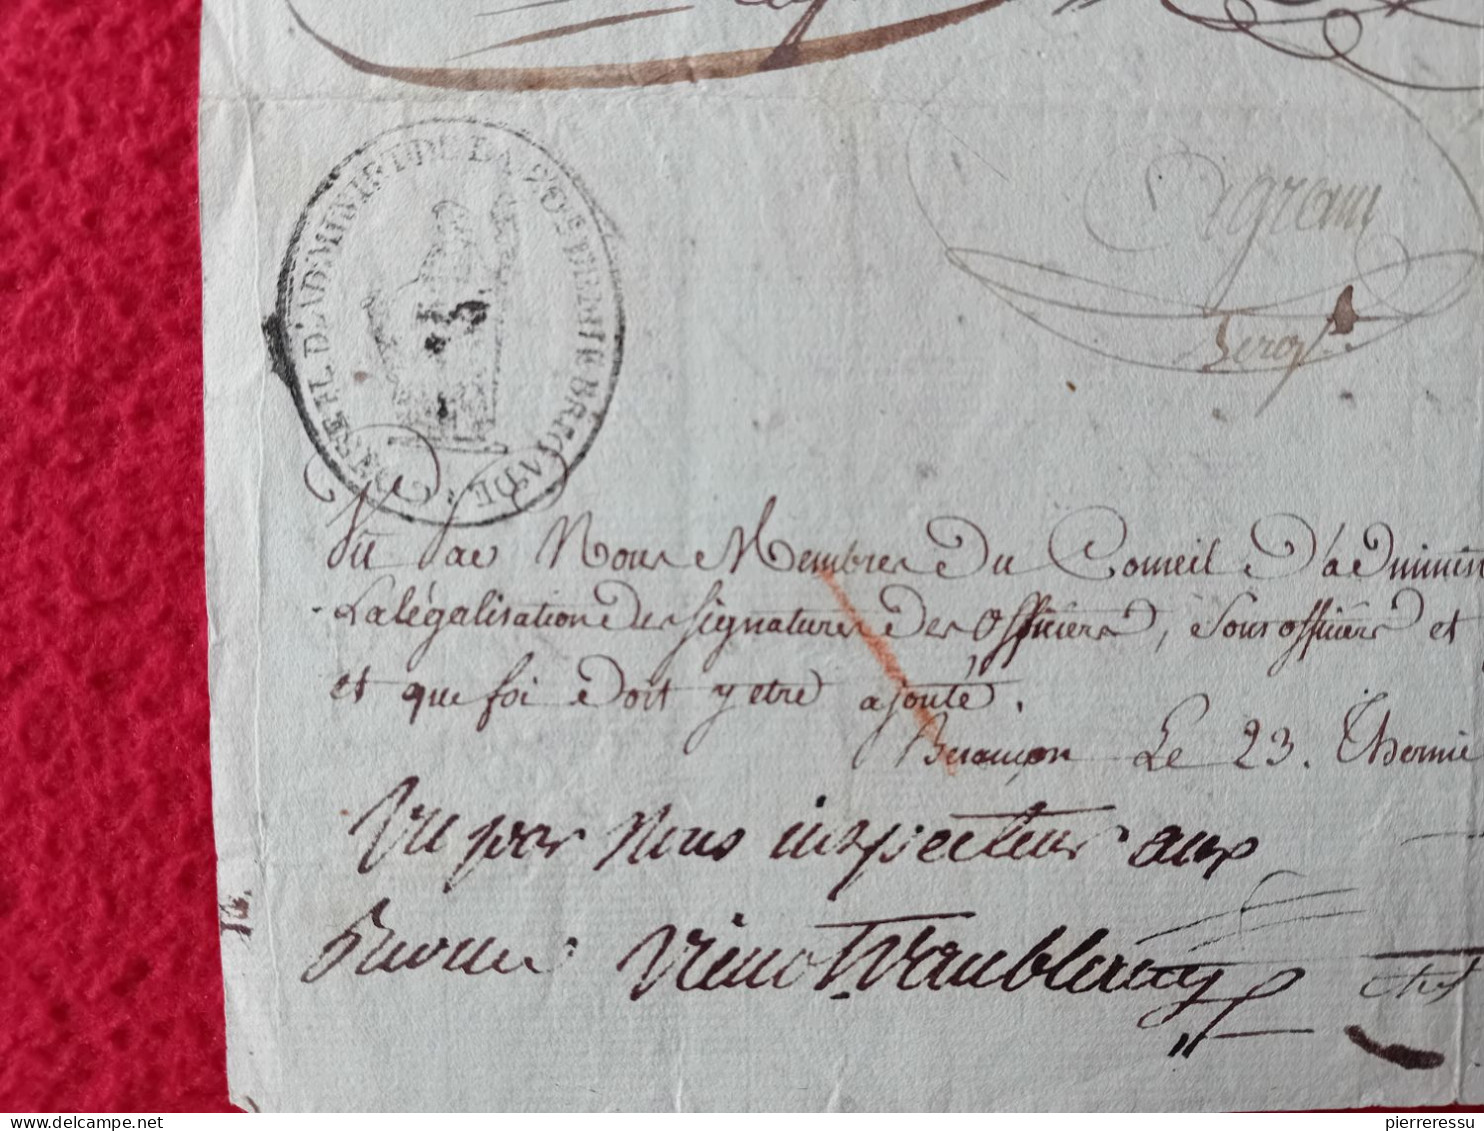 CONSEIL D'ADMINIST. DE LA 20.EME DEMIE BRIGADE
Vu Par Nous Membres Du Conseil D'adminis
La légalisation des signatures des officiers, Sous officiers et
et que foi Doit y etre ajouté.
Besançon Le 23. Thermi
Vu par nous inspecteur aux
Revues Vienot Vaublanc
pierreressu